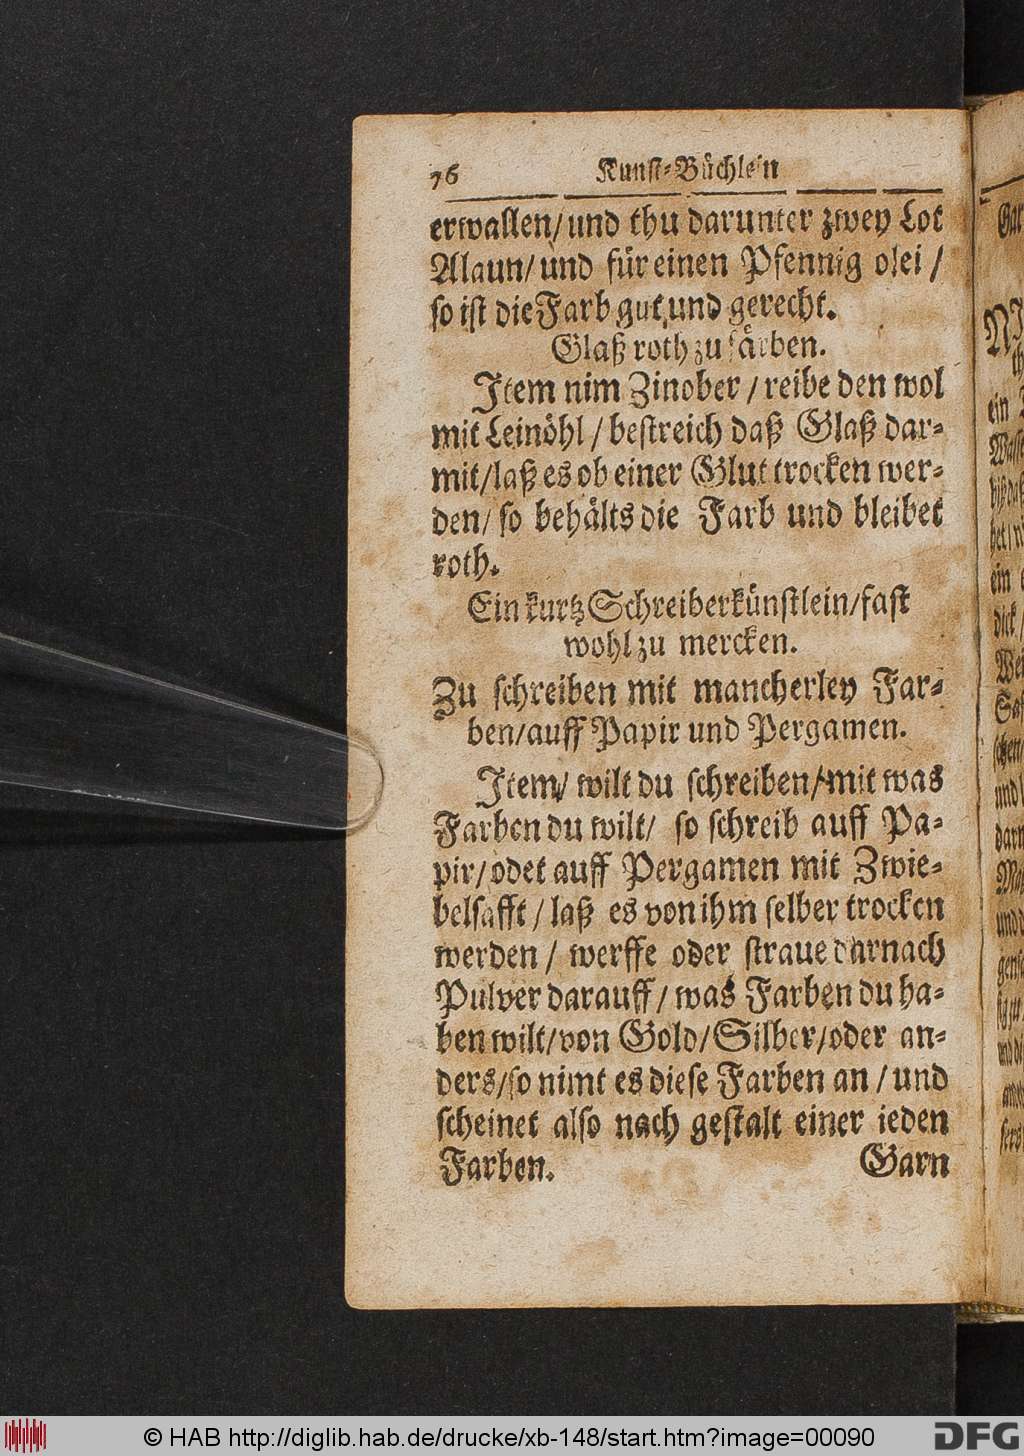 76 Kunst-Büchlein
erwallen/ und thu darunter zwey Lot
Alaun/ und für einen Pfennig olei /
so ist die Farb gut und gerecht.
Glaß roth zu färben.
Item nim Zinober / reibe den wol
mit Leinöhl / bestreich daß Glaß dar-
mit/ laß es ob einer Glut trocken wer-
den/ so behälts die Farb und bleibet
roth.
Ein kurtz Schreiberkünstlein/ fast
wohl zu mercken.
Zu schreiben mit mancherley Far-
ben/ auff Papir und Pergamen.
Item/ wilt du schreiben/ mit was
Farben du wilt/ so schreib auff Pa-
pir/ odet auff Pergamen mit Zwie-
belsafft / laß es von ihm selber trocken
werden / werffe oder straue darnach
Pulver darauff / was Farben du ha-
ben wilt/ von Gold/ Silber/ oder an-
ders/ so nimt es diese Farben an / und
scheinet also nach gestalt einer ieden
Farben. Garn
© HAB http://diglib.hab.de/drucke/xb-148/start.htm?image=00090
DFG